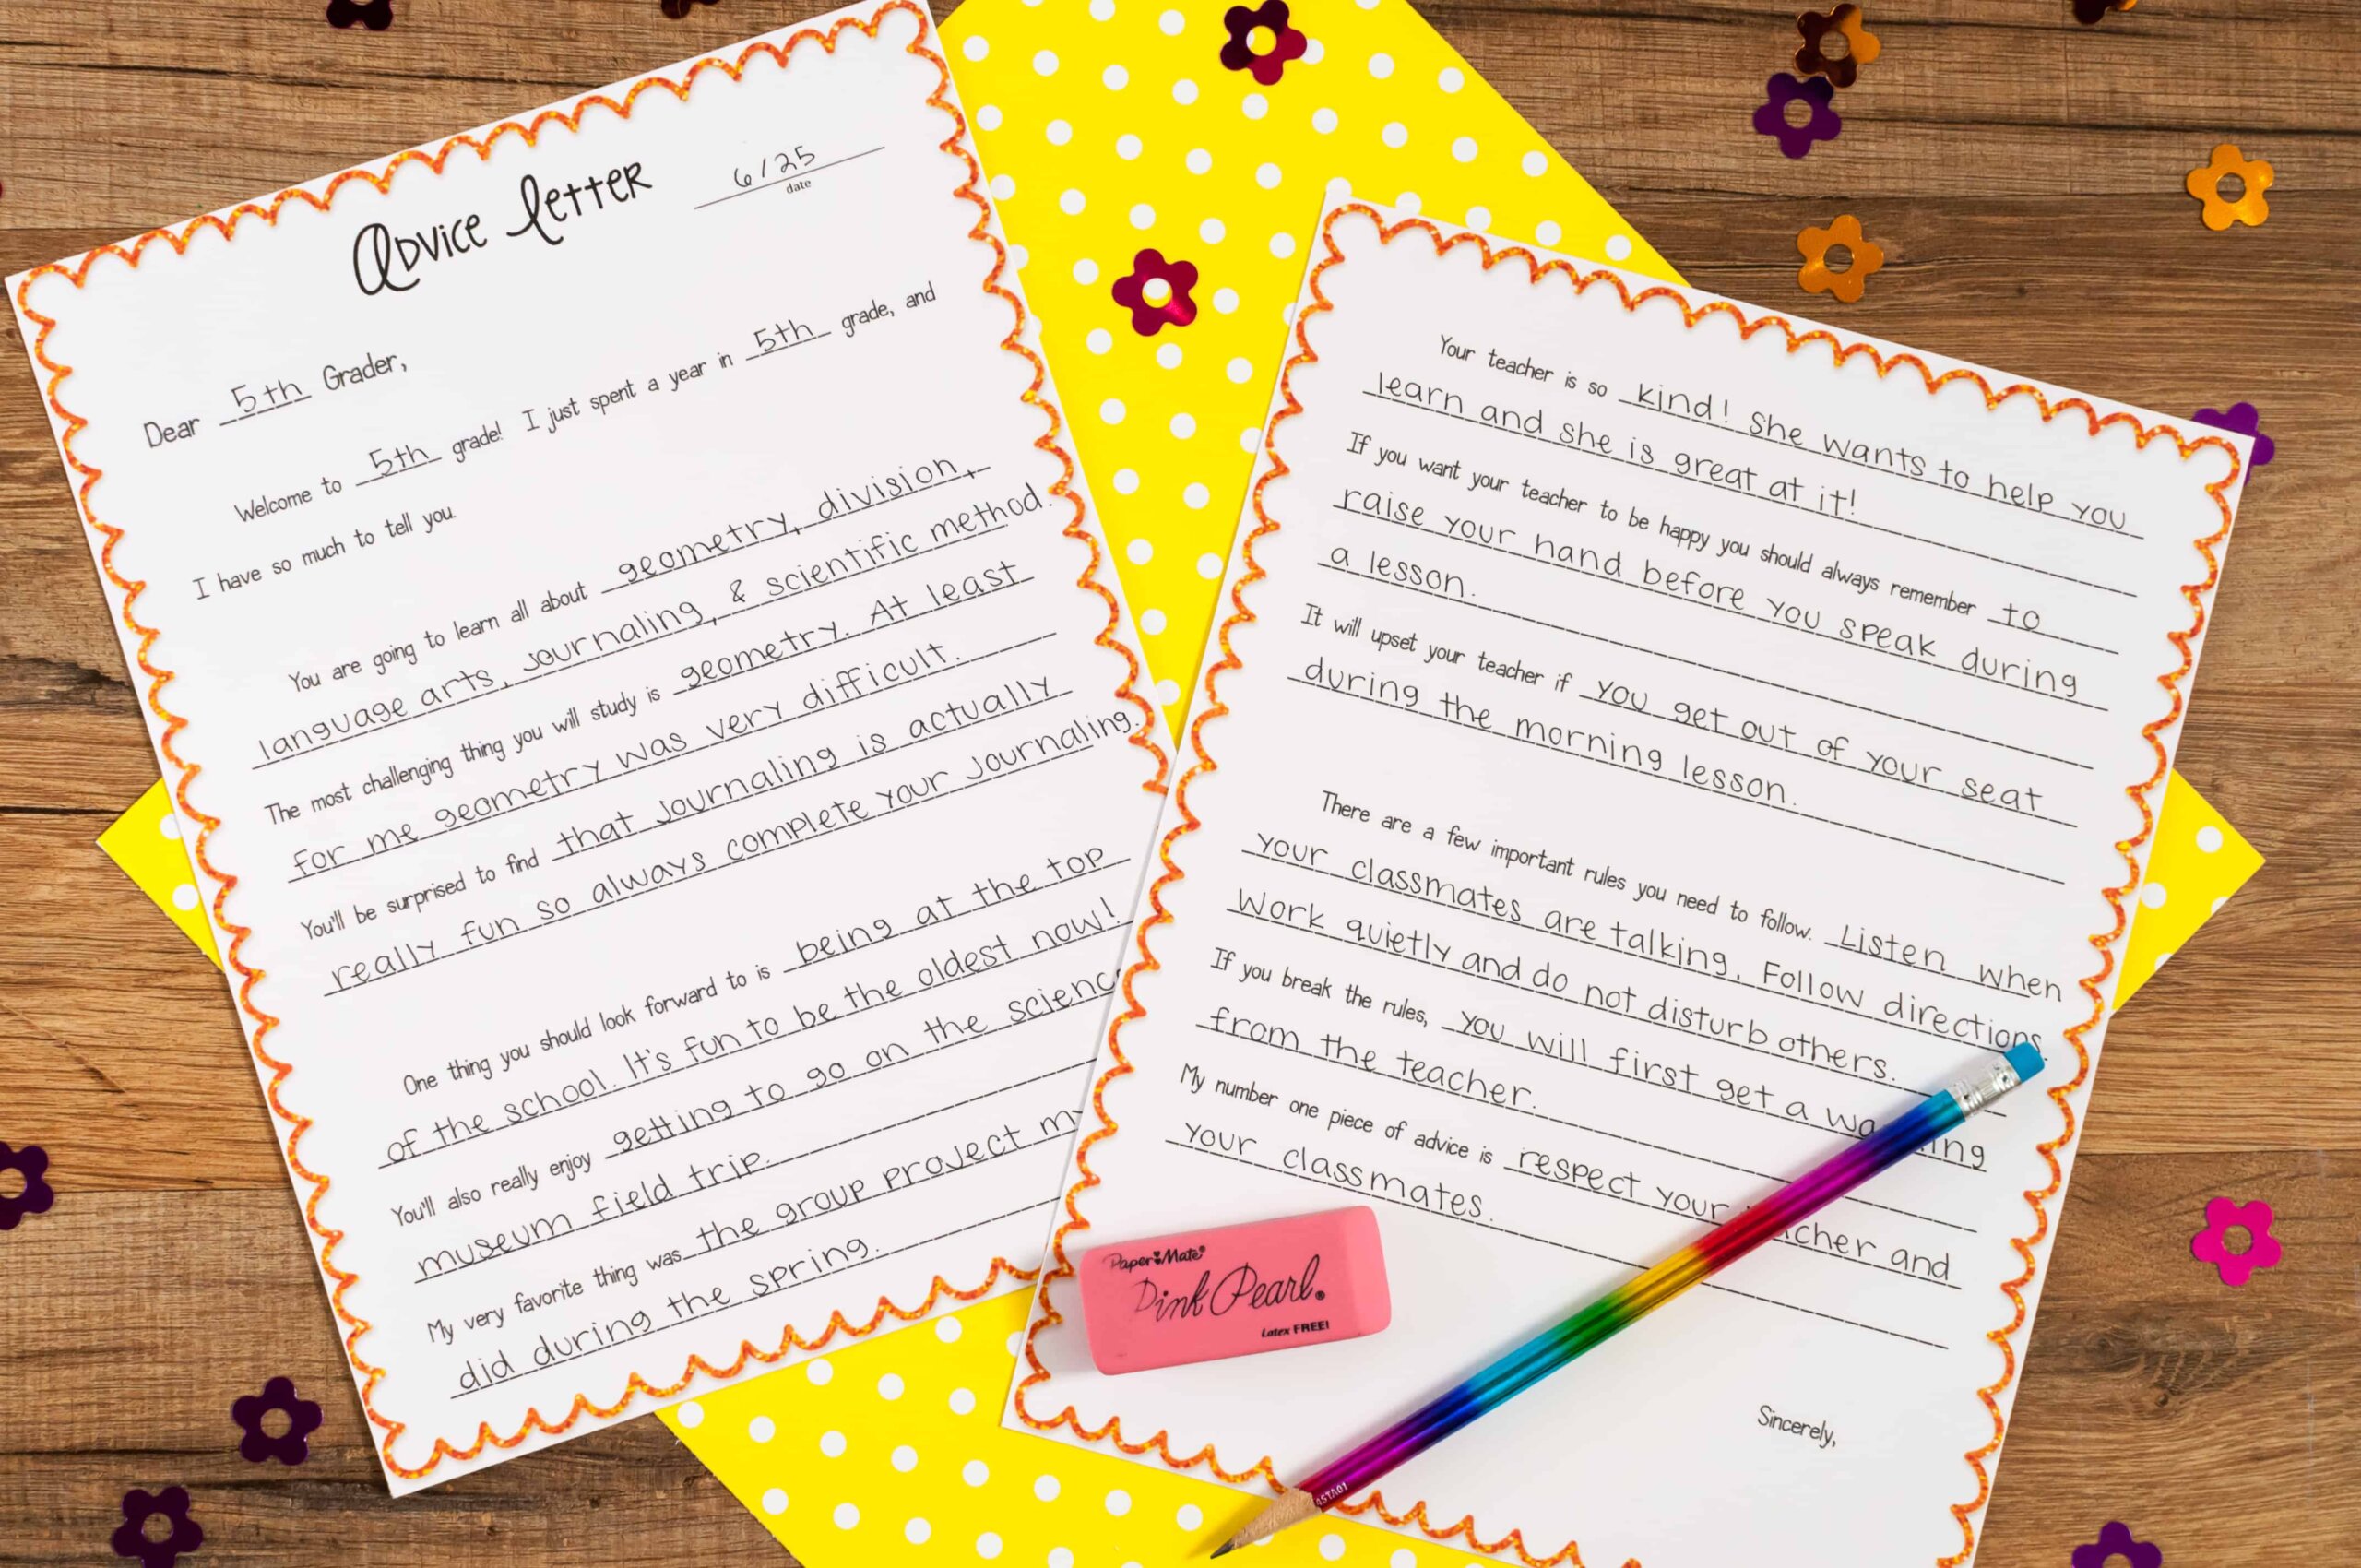 Advice Letter 6/25
date
Dear 5th Grader,
Welcome to 5th grade! I just spent a year in 5th grade, and
I have so much to tell you.
You are going to learn all about geometry, division,
language arts, journaling, & scientific method.
The most challenging thing you will study is geometry. At least
for me geometry was very difficult.
You'll be surprised to find that journaling is actually
really fun so always complete your journaling.
One thing you should look forward to is being at the top
of the school. It's fun to be the oldest now!
You'll also really enjoy getting to go on the scienc
museum field trip.
My very favorite thing was the group project
did during the spring.
Your teacher is so kind! She wants to help you
learn and she is great at it!
If you want your teacher to be happy you should always remember to
raise your hand before you speak during
a lesson.
It will upset your teacher if you get out of your seat
during the morning lesson.
There are a few important rules you need to follow. Listen when
your classmates are talking. Follow directions.
Work quietly and do not disturb others.
If you break the rules, you will first get a wa ing
from the teacher.
My number one piece of advice is respect your cher and
your classmates.
Sincerely,
Paper Mate®
Pink Pearl®
Latex FREE!